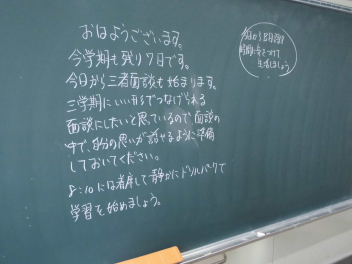 おはようございます。
今学期も残り7日です。
今日から三者面談も始まります。
三学期にいい形でつなげられる
面談にしたいと思っているので面談の
中で、自分の思いが話せるように準備
しておいてください。
8:10には着席して静かにドリルパークで
学習を始めましょう。
今日から
時間に気をつけて
生活しましょう